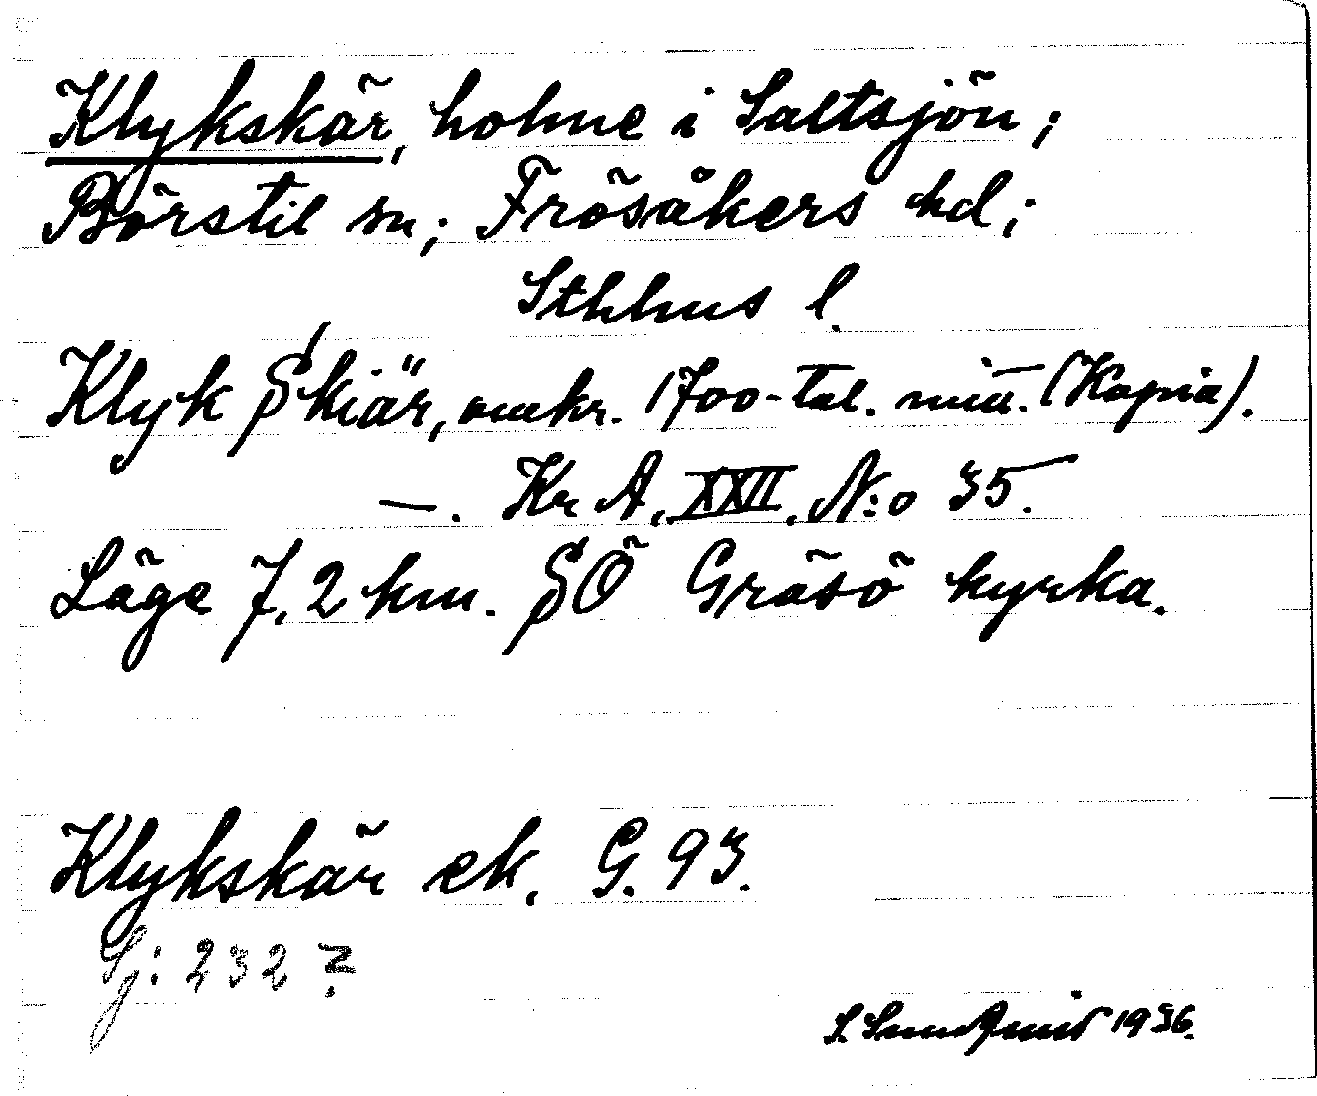 Klykskär, holme i Saltsjön;
Börstil sn; Frösåkers hd;
Sthhus l.
Klyk Skiär, omkr. 1700-tal. mitt. (Kopia).
—. Kr A, XXII, N:o 35.
Läge 7,2 km. SÖ Gräsö kyrka.
Klykskär ek. G. 93.
Sj: 232
S. Sundquist 1936.